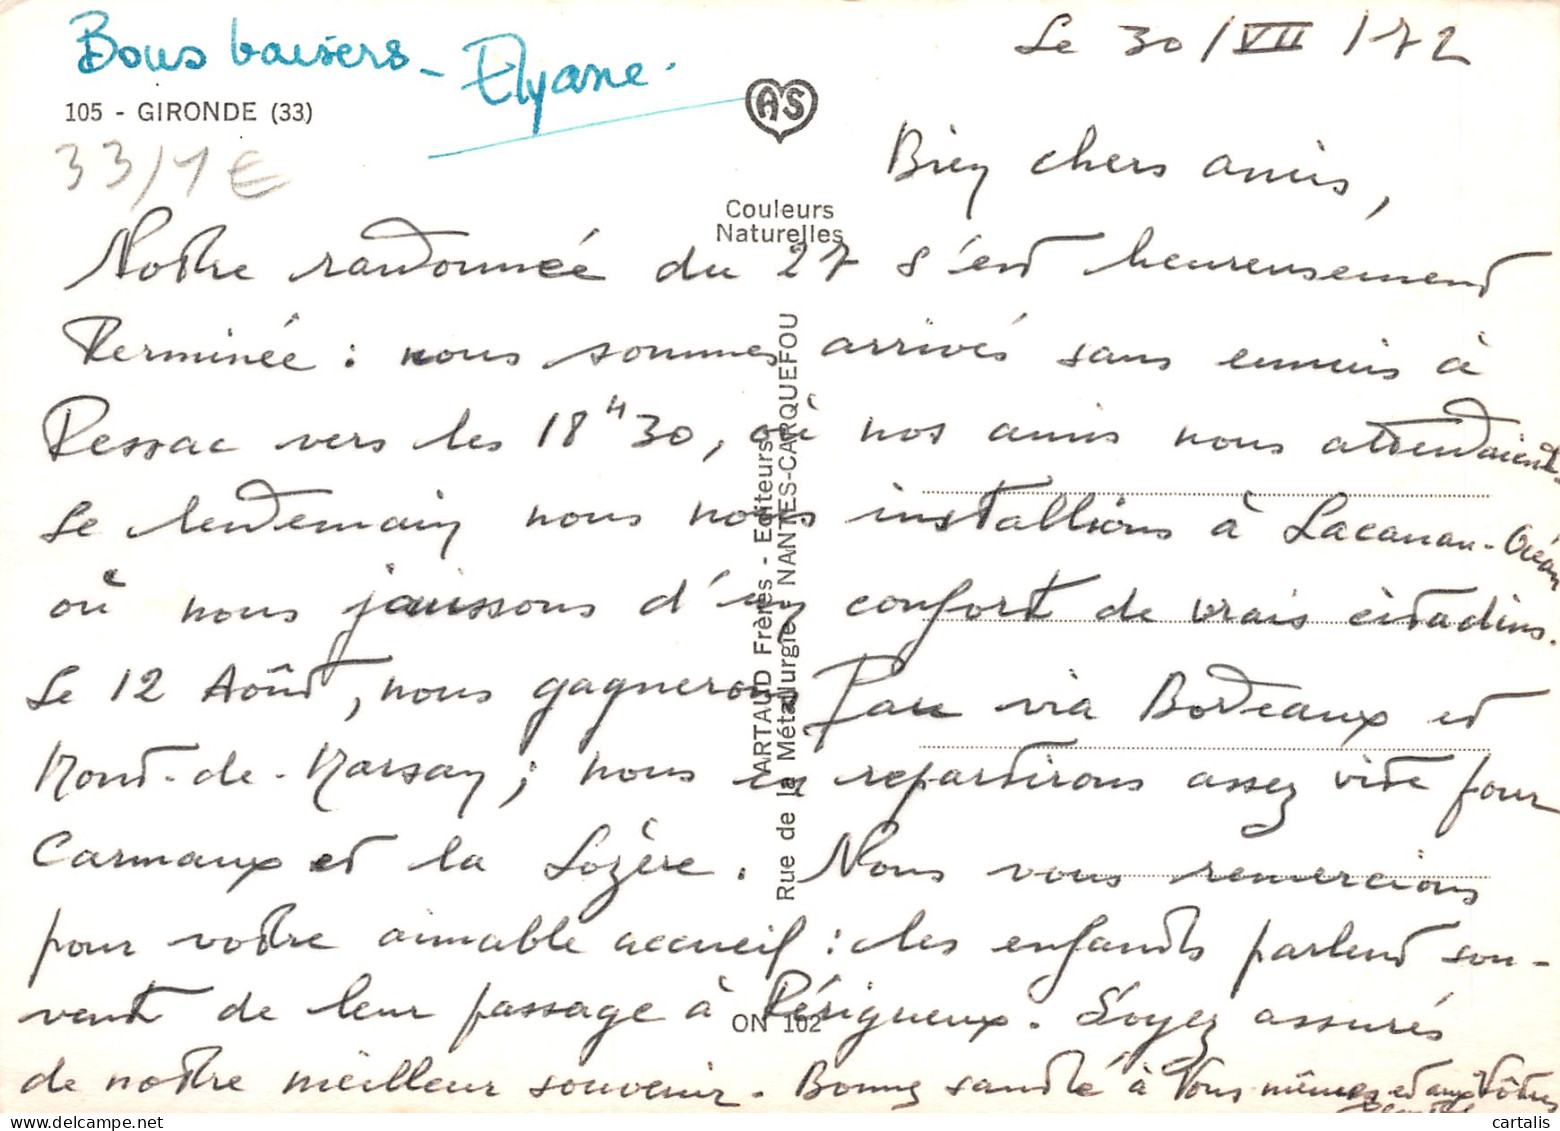 Bons baisers - Elyane.
Le 30/VII/72
105 - GIRONDE (33)
AS
33/1€
Bien chers amis,
Couleurs
Naturelles
Notre randonnée du 27 s'est heureusement
terminée : nous sommes arrivés sans ennuis à
Pessac vers les 18h30, où nos amis nous attendaient.
Le lendemain nous nous installions à Lacanau-Océan
où nous jouissons d'un confort de vrais citadins.
Le 12 Août, nous gagnerons Pau via Bordeaux et
Mont-de-Marsan ; nous en repartirons assez vite pour
Carmaux et la Lozère. Nous vous remercions
pour votre aimable accueil : les enfants parlent sou-
vent de leur passage à Périgueux. Soyez assurés
de notre meilleur souvenir. Bonne santé à Vous-mêmes et aux Vôtres
ARTAUD Frères - Editeurs
Rue de la Métallurgie - NANTES-CARQUEFOU
ON 102
cartalis